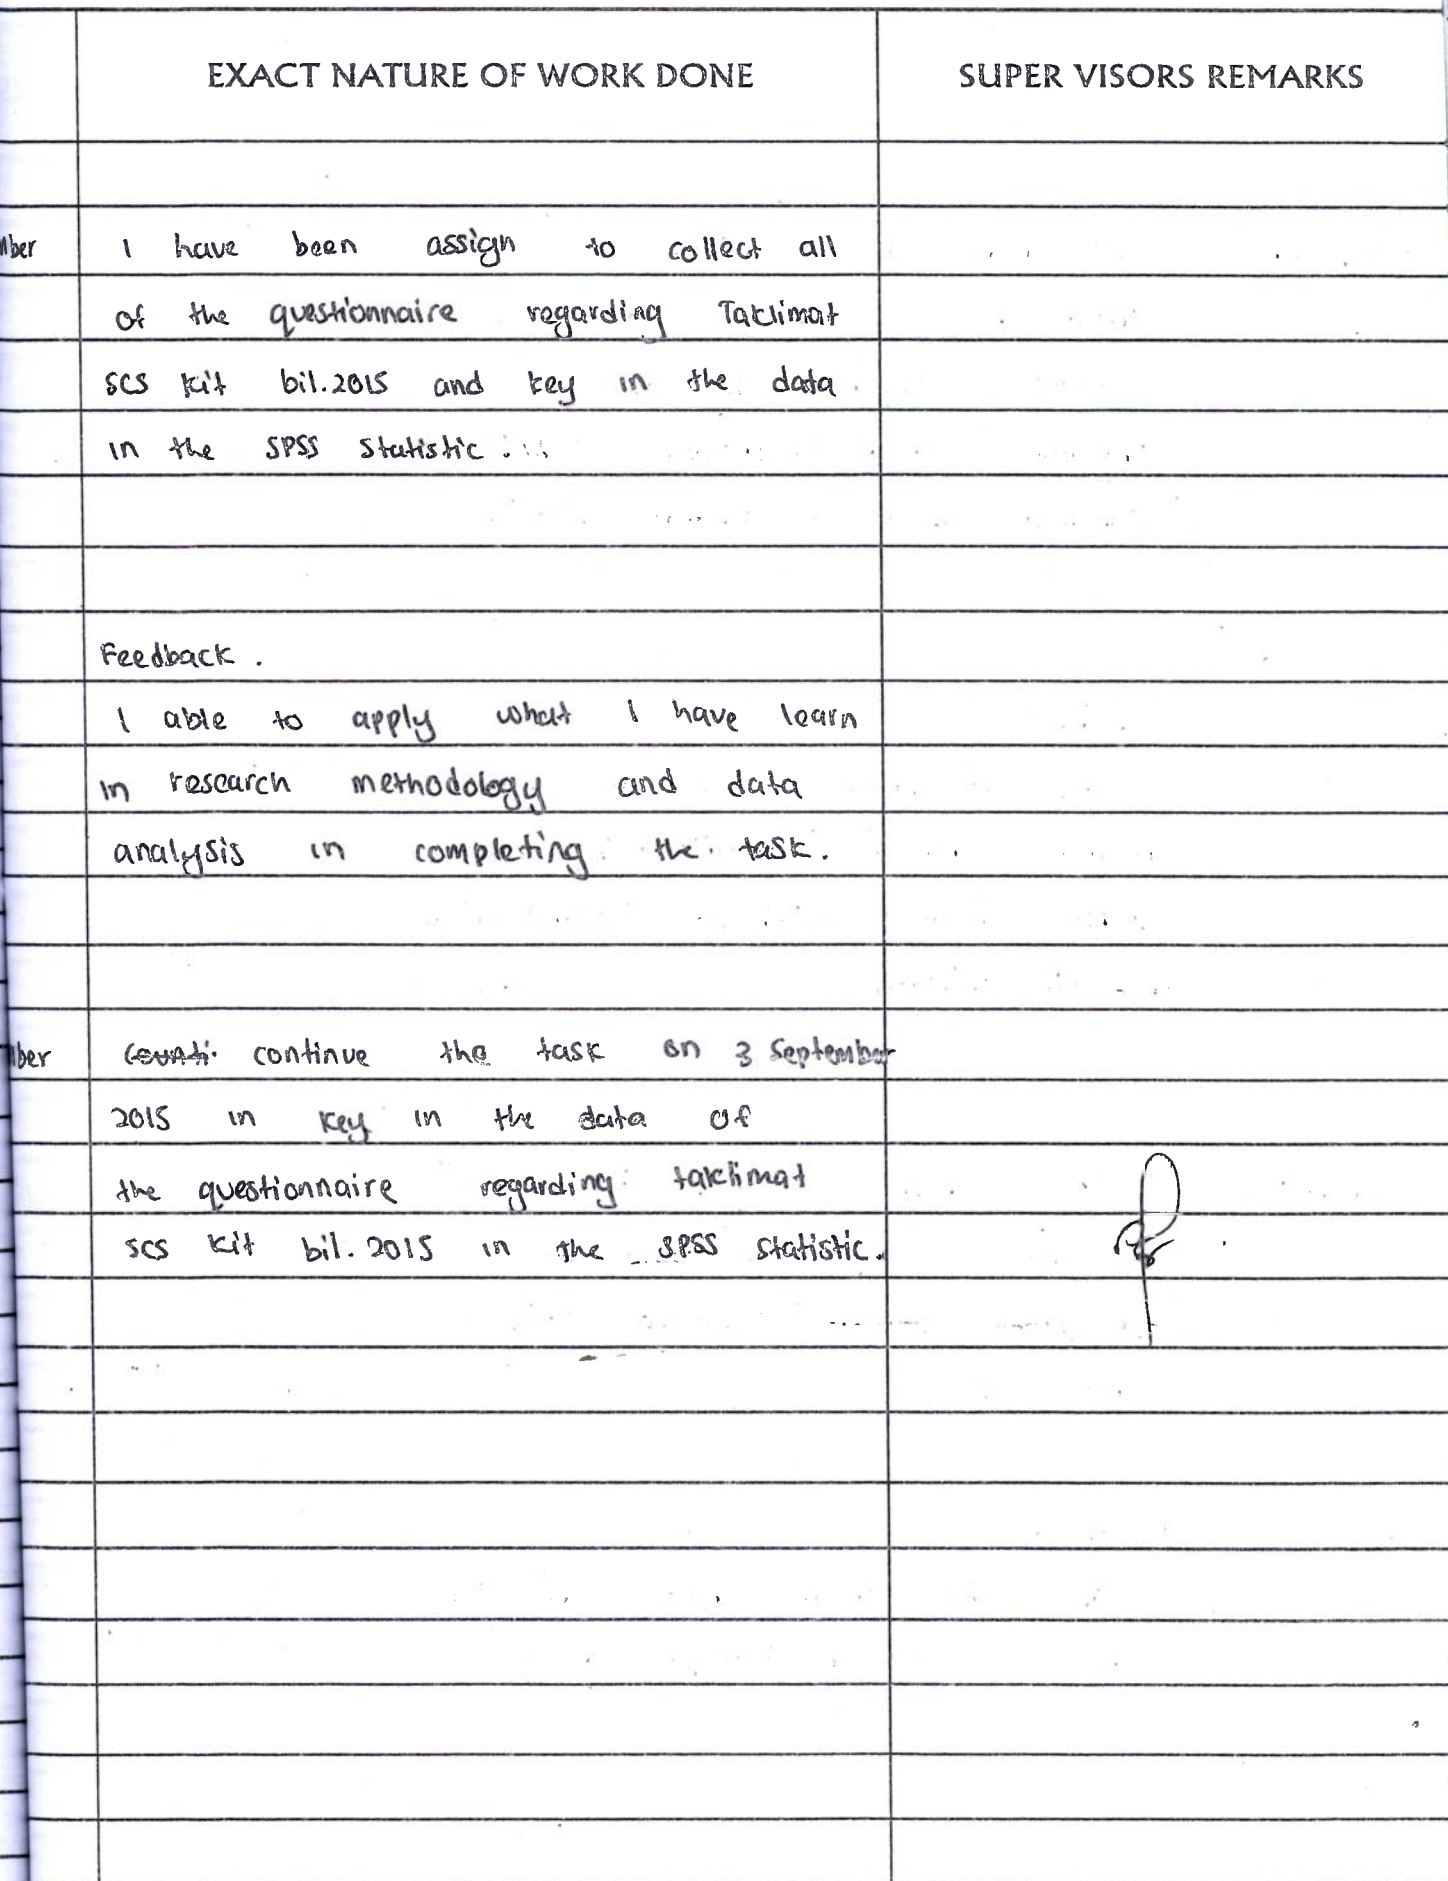 EXACT NATURE OF WORK DONE
SUPER VISORS REMARKS
mber I have been assign to collect all
of the questionnaire regarding Taklimat
SCS Kit bil.2015 and key in the data
in the SPSS Statistic.
Feedback.
I able to apply what I have learn
in research methodology and data
analysis in completing the task.
mber continue the task on 3 September
2015 in key in the data of
the questionnaire regarding taklimat
SCS Kit bil. 2015 in the SPSS Statistic.